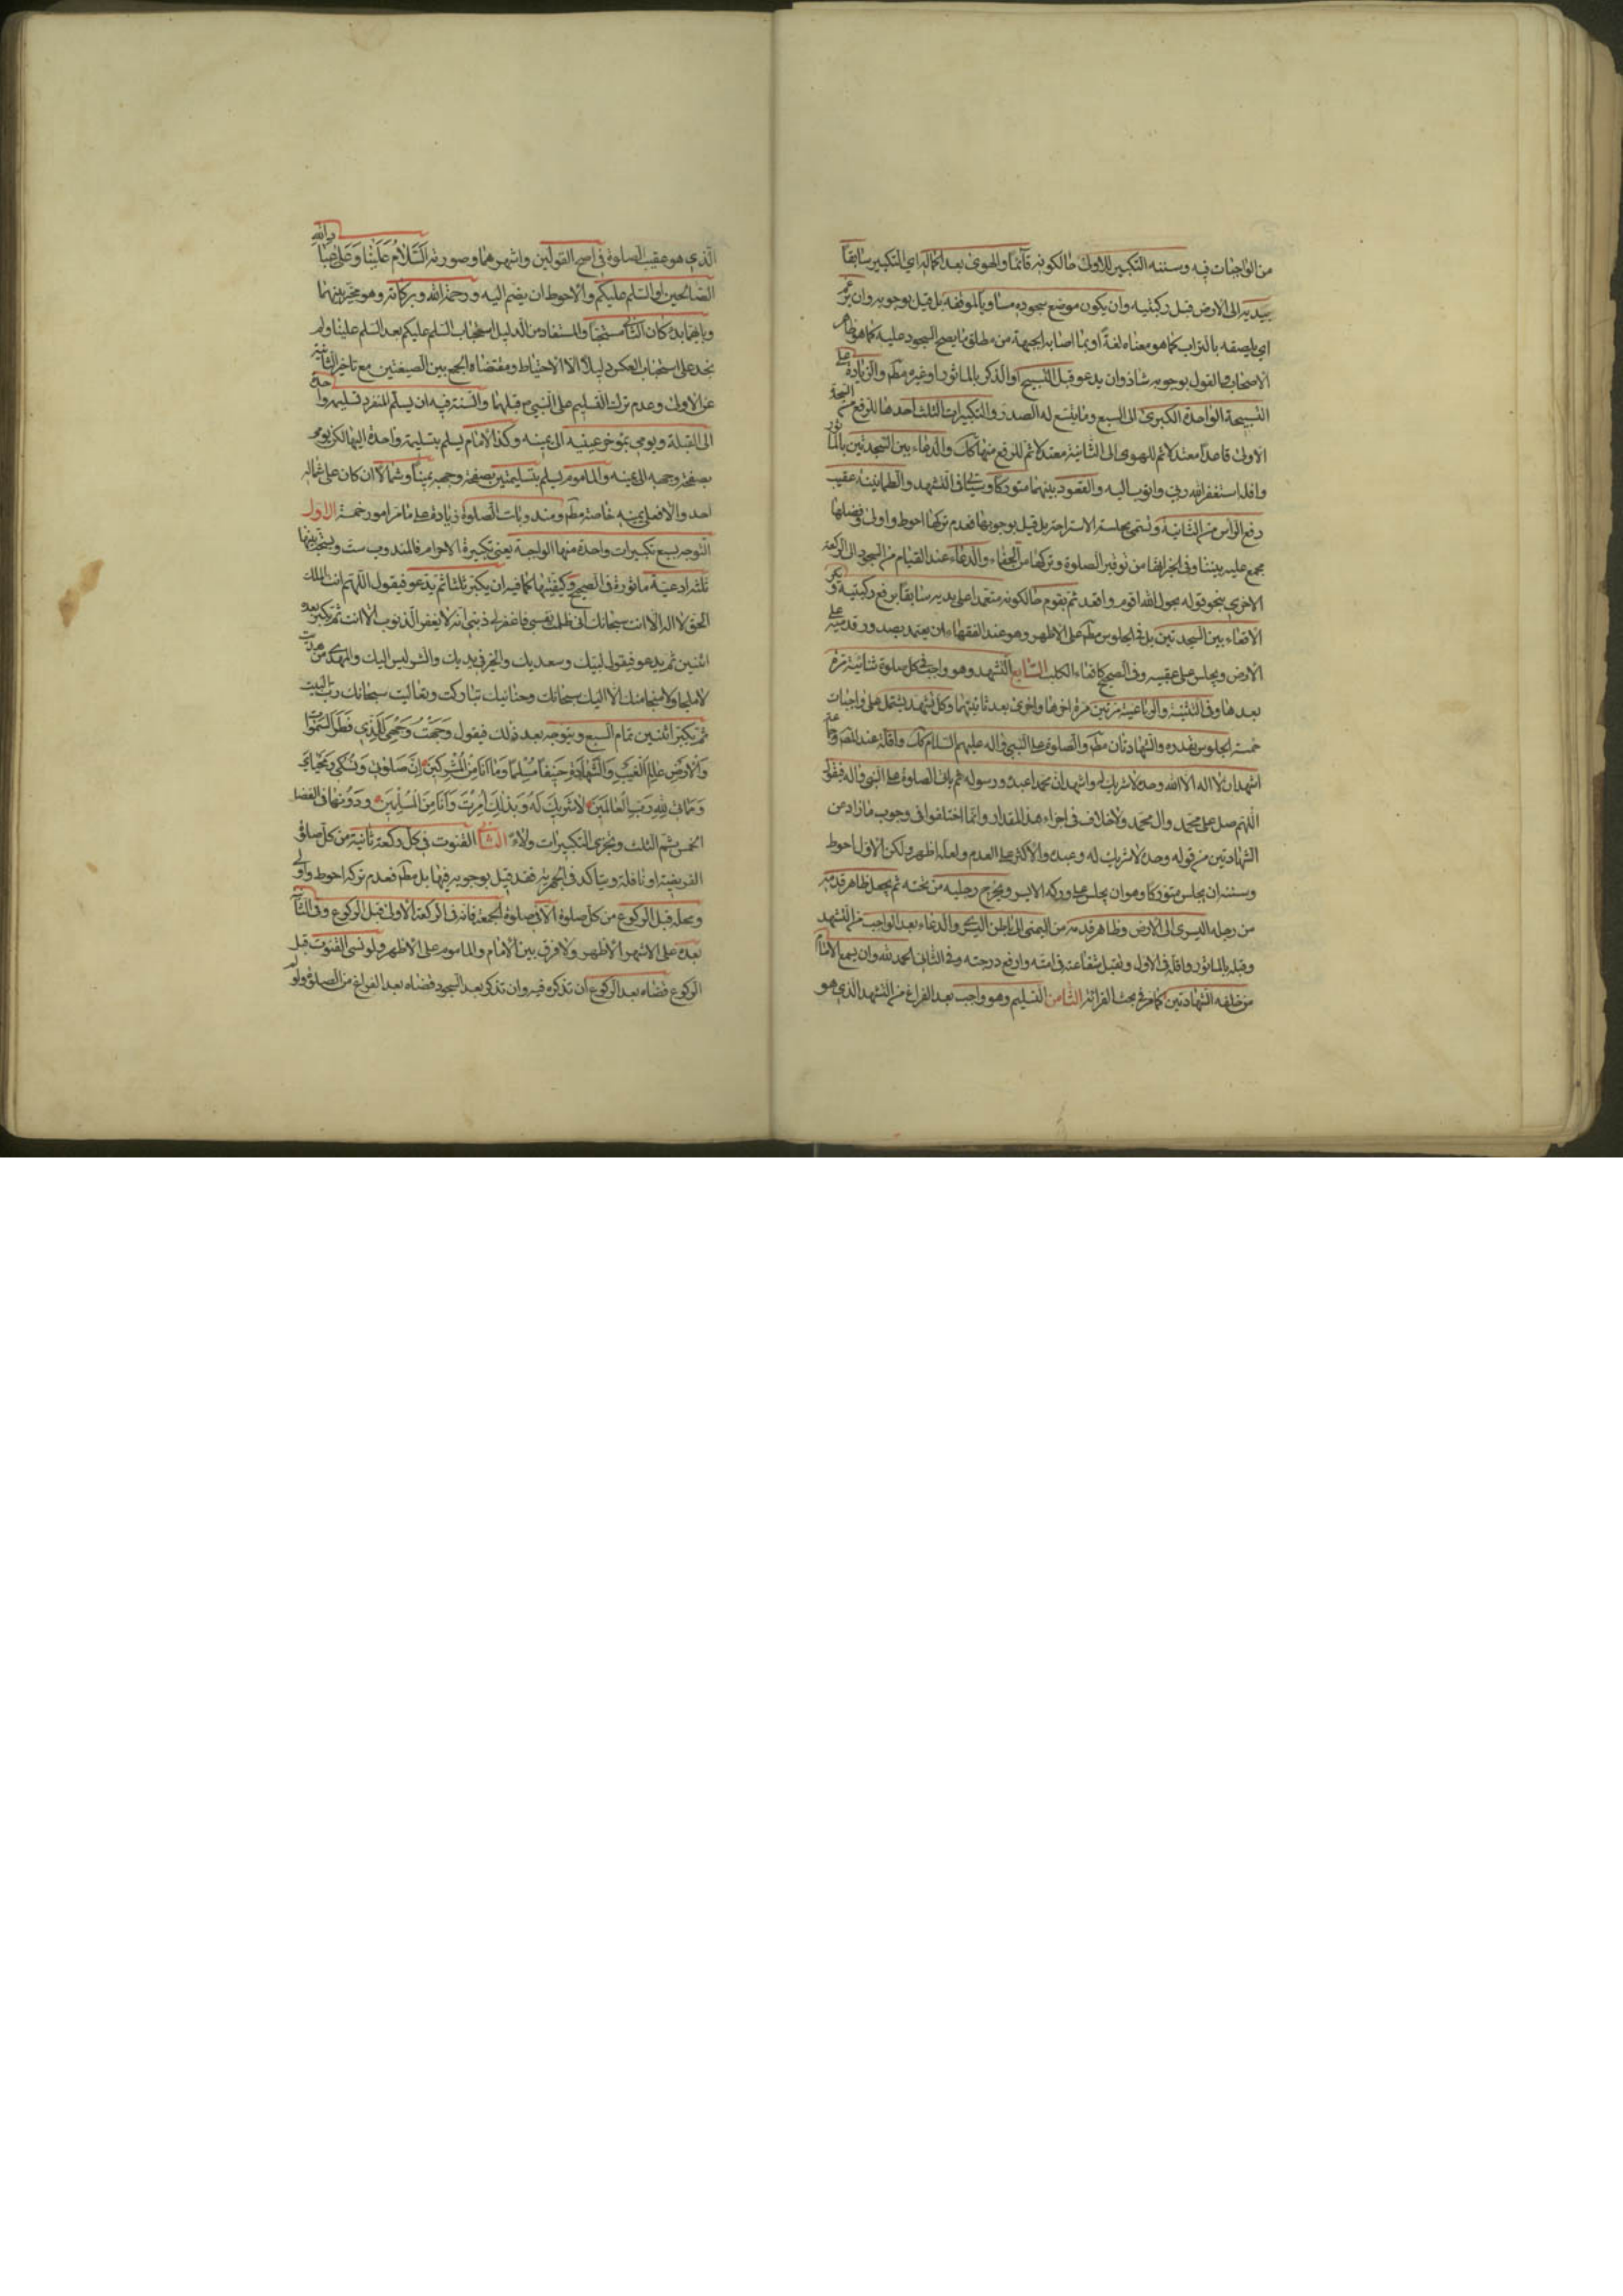 من الواجبات فيه وسننه التكبير للاولى حالكونه قائما والهوى بعد اكماله اي التكبير سابقا
بيديه الى الارض قبل ركبتيه وان يكون موضع سجوده مساويا لموقفه بل قيل بوجوبه وان يرغم
اي يلصقه بالتراب كما هو معناه لغة او بما اصابه الجبهة من مطلق ما يصح السجود عليه كما هو ظاهر
الاصحاب والقول بوجوبه شاذ وان يدعو قبل التسبيح او الذكر بالماثور او غيره مطم والزيادة على
التسبيحة الواحدة الكبرى الى السبع وما يتسع له الصدر والتكبيرات الثلث احدها للرفع من السجدة
الاولى قاعدا معتدلا ثم للهوى الى الثانية معتدلا ثم للرفع منها كك والدعاء بين السجدتين بالماثور
واقله استغفر الله ربي واتوب اليه والقعود بينهما متوركا وسياتى في التشهد والطمانينة عقيب
رفع الراس من الثانية وتسمى بجلسة الاستراحة بل قيل بوجوبها فعدم تركها احوط واولى وفضلها
مجمع عليه بيننا وفي الخبر انها من توقير الصلوة وتركها من الجفاء والدعاء عند القيام من السجود الى الركعة
الاخرى بنحو قوله بحول الله اقوم واقعد ثم يقوم حالكونه معتمدا على يديه سابقا برفع ركبتيه ويكره
الاقعاء بين السجدتين بل في الجلوس مطم على الاظهر وهو عند الفقهاء ان يعتمد بصدور قدميه على
الارض ويجلس على عقبيه وفي الصحيح كاقعاء الكلب السابع التشهد وهو واجب في كل صلوة ثنائية مرة
بعدها وفي الثلثية والرباعية مرتين مرة اخرها واخرى بعد ثانيتهما وكل تشهد يشتمل على واجبات
خمسة الجلوس بقدره والشهادتان مطم والصلوة على النبي واله عليهم السلام كك واقله عند المصر وجماعة
اشهد ان لا اله الا الله وحده لا شريك له واشهد ان محمدا عبده ورسوله ثم ياتى الصلوة على النبي واله فيقول
اللهم صل على محمد وال محمد ولا خلاف في اجزاء هذا المقدار وانما اختلفوا في وجوب ما زاد عن
الشهادتين من قوله وحده لا شريك له وعبده والاكثر على العدم ولعله اظهر ولكن الاول احوط
وسننه ان يجلس متوركا وهو ان يجلس على وركه الايسر ويخرج رجليه من تحته ثم يجعل ظاهر قدمه
من رجله اليسرى الى الارض وظاهر قدمه من اليمنى الى باطن اليسرى والدعاء بعد الواجب من التشهد
وقبله بالماثور واقله في الاول وتقبل شفاعته في امته وارفع درجته وفي الثاني الحمد لله وان يسمع الامام
من خلفه الشهادتين كما مر في بحث القرائة الثامن التسليم وهو واجب بعد الفراغ من التشهد الذي هو
الذي هو عقيب الصلوة في اصح القولين واشهرهما وصورته السلام علينا وعلى عباد الله
الصالحين او السلم عليكم والاحوط ان يضم اليه ورحمة الله وبركاته وهو مخير بينهما
وبايهما بدء كان الثانى مستحبا والمستفاد من الدليل استحباب السلم عليكم بعد السلم علينا ولم
نجد على استحباب العكس دليلا الا الاحتياط ومقتضاه الجمع بين الصيغتين مع تاخير الثانية
عن الاولى وعدم ترك التسليم على النبي ص قبلهما والسنة فيه ان يسلم المنفرد تسليمة واحدة
الى القبلة ويومي بمؤخر عينيه الى يمينه وكذا الامام يسلم بتسليمة واحدة اليها لكن يومى
بصفحة وجهه الى يمينه والماموم يسلم بتسليمتين بصفحة وجهه يمينا وشمالا ان كان على شماله
احد والا فعلى يمينه خاصة مطم ومندوبات الصلوة زيادة على ما مر امور خمسة الاول
التوجه بسبع تكبيرات واحدة منها الواجبة يعني تكبيرة الاحرام فالمندوب ست ويستحب بينها
ثلثه ادعية ماثورة في الصحيح وكيفيتها كما فيه ان يكبر ثلثا ثم يدعو فيقول اللهم انت الملك
الحق لا اله الا انت سبحانك انى ظلمت نفسي فاغفر لى ذنبي انه لا يغفر الذنوب الا انت ثم يكبر بعده
اثنين ثم يدعو فيقول لبيك وسعديك والخير في يديك والشر ليس اليك والمهدى من هديت
لا ملجا ولا منجا منك الا اليك سبحانك وحنانيك تباركت وتعاليت سبحانك رب البيت
ثم يكبر اثنين تمام السبع ويتوجه بعد ذلك فيقول وجهت وجهي للذي فطر السموات
والارض عالم الغيب والشهادة حنيفا مسلما وما انا من المشركين ان صلوتى ونسكى ومحياي
ومماتى لله رب العالمين لا شريك له وبذلك امرت وانا من المسلمين ودونها في الفضل
الخمس ثم الثلث ويجزى التكبيرات ولاء الثانى القنوت في كل ركعة ثانية من كل صلوة
الفريضة او نافلة ويتاكد في الجهرية فقد قيل بوجوبه فيها بل مطم فعدم تركه احوط واولى
ومحله قبل الركوع من كل صلوة الا في صلوة الجمعة فانه في الركعة الاولى قبل الركوع وفي الثانية
بعده على الاشهر الاظهر ولا فرق بين الامام والماموم على الاظهر ولو نسى القنوت قبل
الركوع قضاه بعد الركوع ان تذكره فيه وان تذكر بعد السجود قضاه بعد الفراغ من الصلوة ولو لم